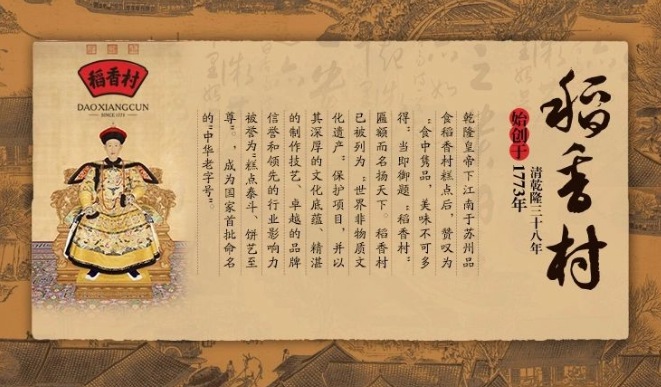 稻香村
DAOXIANGCUN
SINCE 1773
稻香村
清乾隆三十八年
始创于
1773年
乾隆皇帝下江南于苏州品
食稻香村糕点后，赞叹为
“食中隽品，美味不可多
得”，当即御题“稻香村”
匾额而名扬天下。稻香村
已被列为“世界非物质文
化遗产”保护项目，并以
其深厚的文化底蕴、精湛
的制作技艺、卓越的品牌
信誉和领先的行业影响力
被誉为“糕点泰斗、饼艺至
尊”，成为国家首批命名
的“中华老字号”。